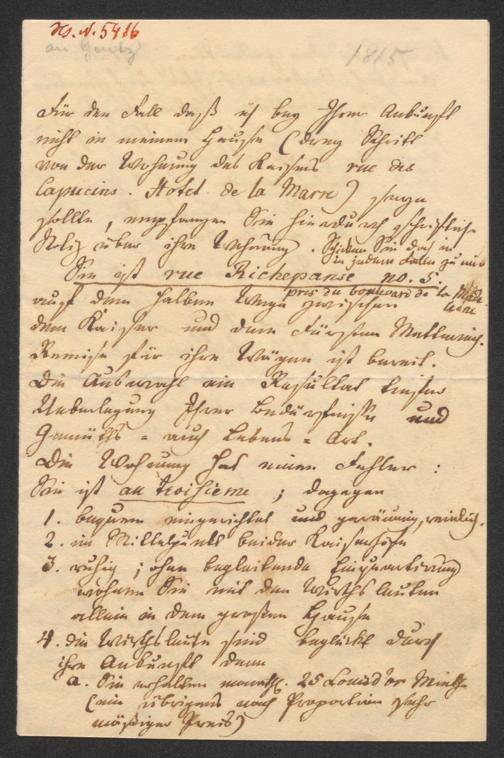 Hs. N. 5416
an Gentz
1815
Für den Fall daß ich bey Ihrer Ankunft
nicht in meinem Hause (drey Schritt
von der Wohnung des Kaisers rue des
Capucins. Hotel de la Marre)
sollte, empfangen Sie hiedurch schriftliche
Notiz über ihre Wohnung. Schicken Sie doch
in jedem Falle zu mir
Sie ist rue Richepanse no. 5.
près du boulevard de la Made
leine
auf dem halben Wege zwischen
dem Kaiser und dem Fürsten Metternich.
Remise für ihre Wägen ist bereit.
Die Auswahl ein Resultat tiefer
Ueberlegung Ihrer Bedürfnisse und
Gemüths- auch Lebens-Art.
Die Wohnung hat einen Fehler:
Sie ist au troisieme; dagegen
1. bequem eingerichtet und geräumig, reinlich.
2. im Mittelpunkt beider Kaiserhöfe
3. ruhig; ohne begleitende Einquartierung
wohnen Sie mit den Wirthsleuten
allein in dem großen Hause
4. die Wirthsleute sind beglückt durch
ihre Ankunft denn
a. Sie erhalten monatl. 25 Louisd'or Miethe
(ein übrigens nach Proportion sehr
mäßiger Preis)